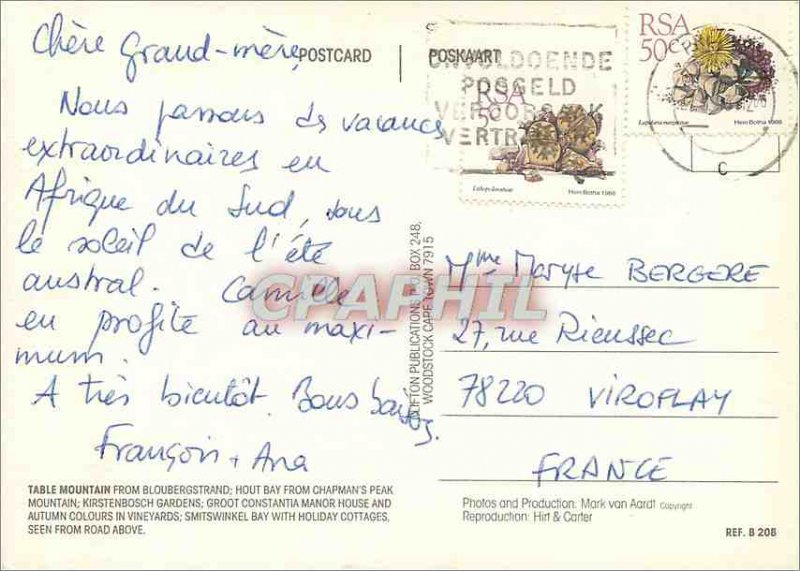 Chère Grand-mère,
POSTCARD
POSKAART
Nous passons des vacances
extraordinaires en
Afrique du Sud, sous
le soleil de l'été
austral. Camille
en profite au maxi-
mum.
A très bientôt. Bons baisers.
François + Ana
TABLE MOUNTAIN FROM BLOUBERGSTRAND; HOUT BAY FROM CHAPMAN'S PEAK
MOUNTAIN; KIRSTENBOSCH GARDENS; GROOT CONSTANTIA MANOR HOUSE AND
AUTUMN COLOURS IN VINEYARDS; SMITSWINKEL BAY WITH HOLIDAY COTTAGES,
SEEN FROM ROAD ABOVE.
CLIFTON PUBLICATIONS P.O. BOX 248,
WOODSTOCK CAPE TOWN 7915
ONVOLDOENDE
POSGELD
VEROORSAAK
VERTRAGING
RSA
5c
Hein Botha 1988
RSA
50c
Hein Botha 1988
C
Mme Maryse BERGERE
27, rue Rieussec
78220 VIROFLAY
FRANCE
Photos and Production: Mark van Aardt Copyright
Reproduction: Hirt & Carter
REF. B 20B
CPAPHIL